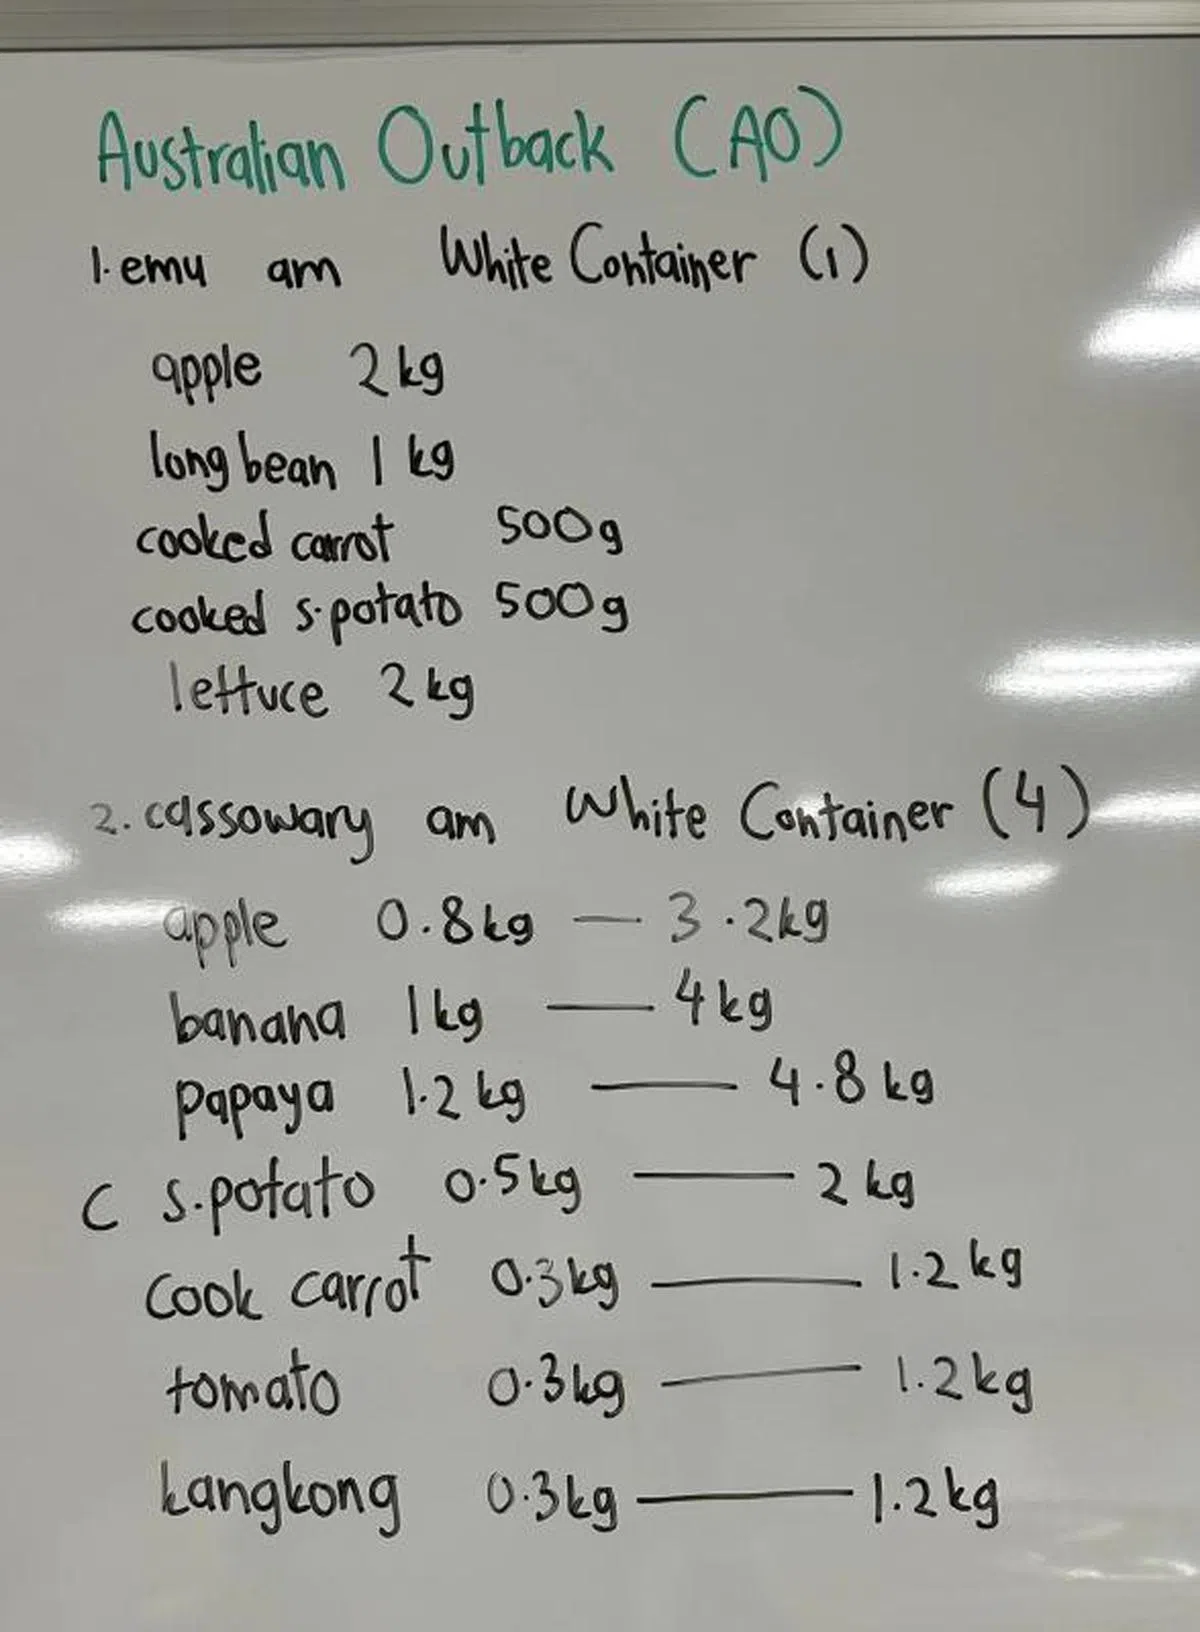 Australian Outback (AO)
1. emu am White Container (1)
apple 2 kg
long bean 1 kg
cooked carrot 500g
cooked s.potato 500g
lettuce 2 kg
2. cassowary am White Container (4)
apple 0.8 kg — 3.2 kg
banana 1 kg — 4 kg
papaya 1.2 kg — 4.8 kg
C s.potato 0.5 kg — 2 kg
Cook carrot 0.3 kg — 1.2 kg
tomato 0.3 kg — 1.2 kg
kangkong 0.3 kg — 1.2 kg